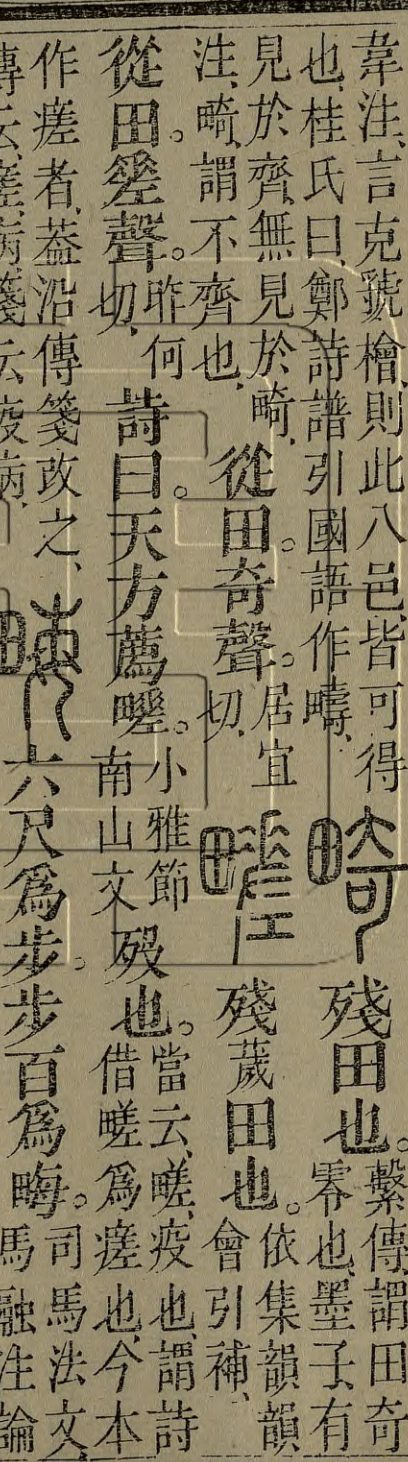 韋注言克虢檜則此八邑皆可得
也桂氏曰鄭詩譜引國語作疇
畸殘田也。
繫傳謂田奇
零也墨子有
見於齊無見於畸
注畸謂不齊也
從田奇聲。
居宜
切
㽨殘薉田也。
依集韻韻
會引補
從田𢀩聲。
昨何
切
詩曰。天方薦㽨。
小雅節
南山文
殁也。
當云㽨疫也謂詩
借㽨爲瘥也今本
作瘥者葢沿傳箋改之
傳云瘥病箋云疫病
畮六尺爲步步百爲畮。
司馬法文
馬融注論